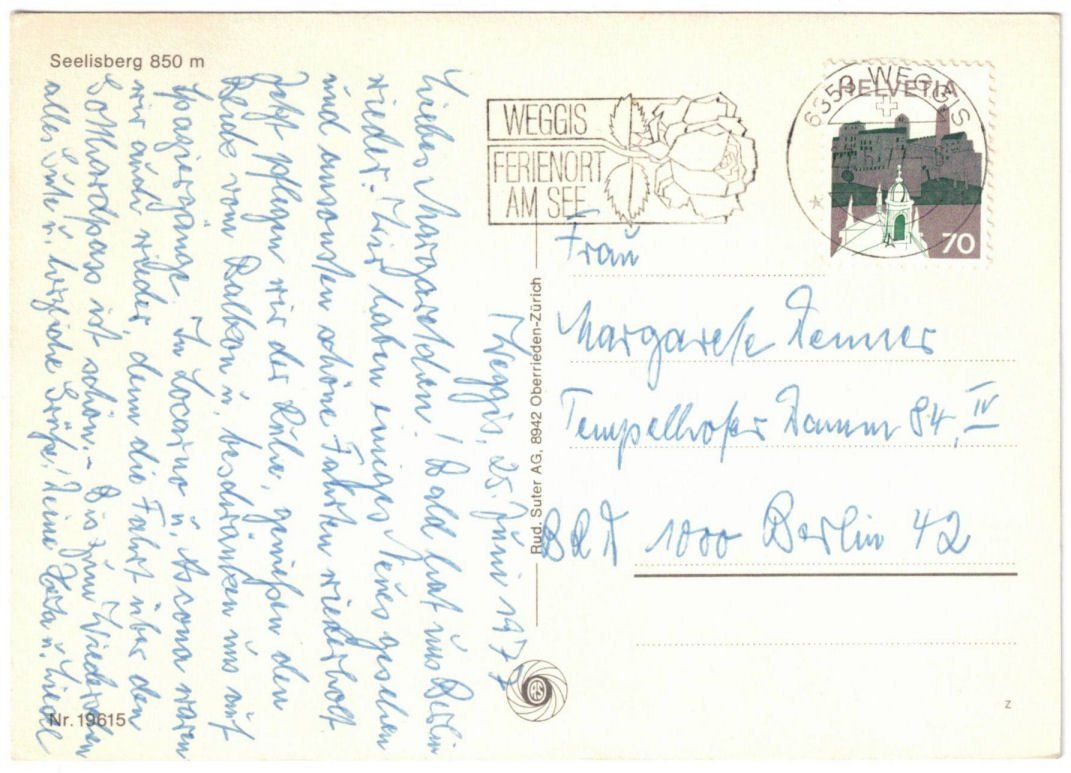 Seelisberg 850 m
WEGGIS
FERIENORT
AM SEE
6353 WEGGIS
HELVETIA
70
Weggis, 25. Juni 1977
Liebes Margaretchen! Bald hat uns Berlin
wieder. Wir haben einiges Neues gesehen
und ansonsten schöne Fahrten wiederholt
Jetzt pflegen wir der Ruhe, genießen den
Blick vom Balkon u. beschränken uns auf
Spaziergänge. In Locarno u. Ascona waren
wir auch wieder, denn die Fahrt über den
Gotthardpass ist schön.- Bis zum Wiedersehen
alles Gute u. herzliche Grüße! Deine Herta u. Liesel
Frau
Margarete Denner
Tempelhofer Damm 84, IV
BRD 1000 Berlin 42
Rud. Suter AG, 8942 Oberrieden-Zürich
RS
Nr. 19615
z